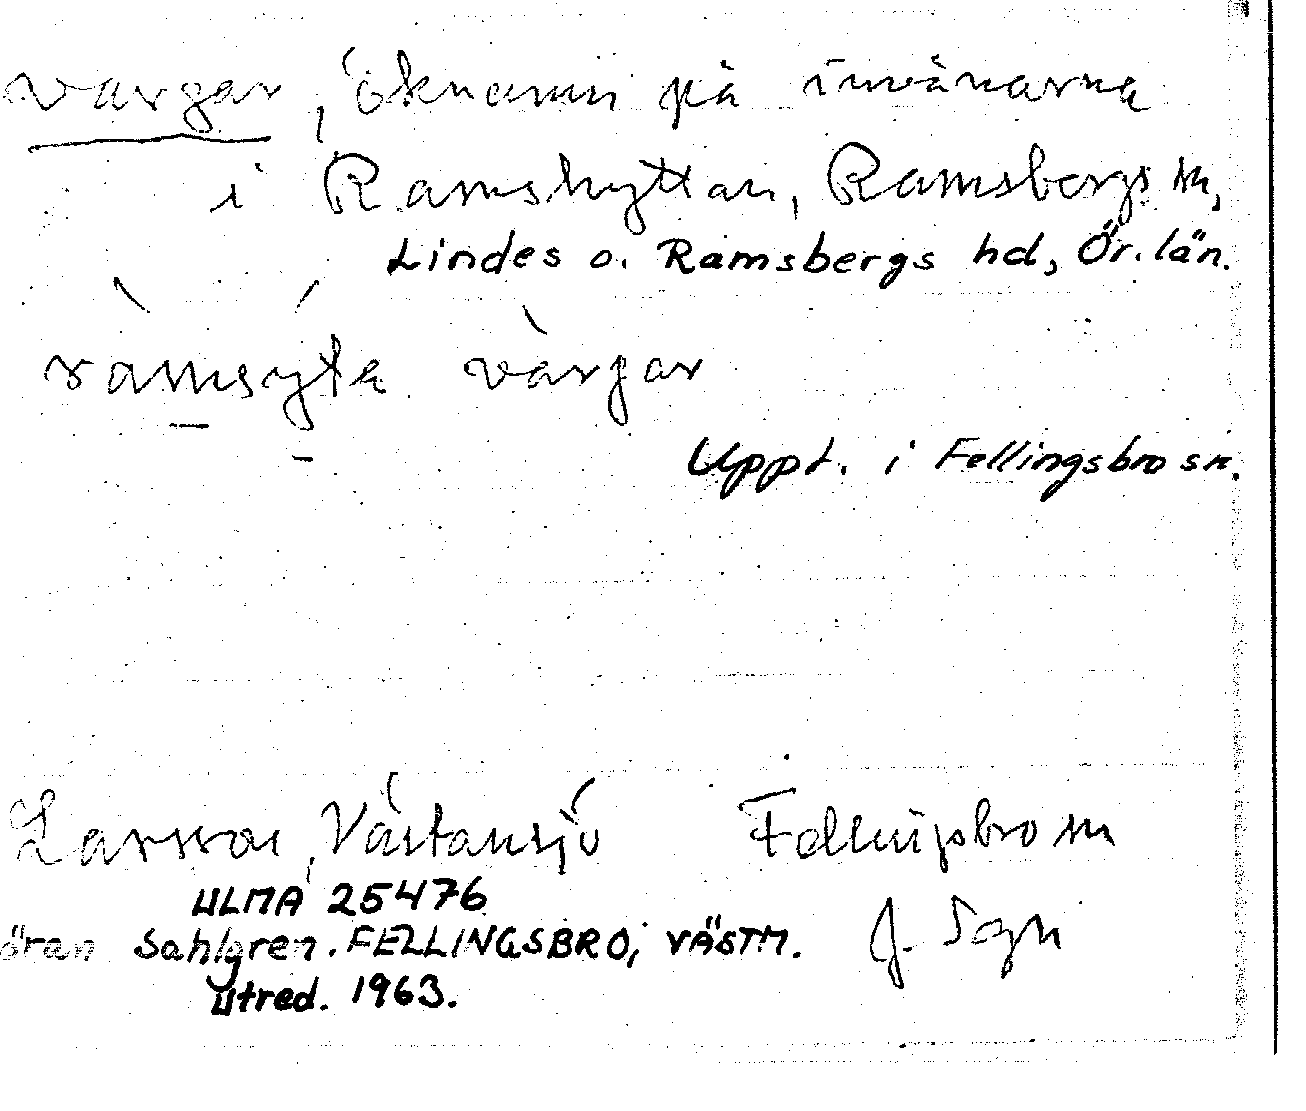 vargar, öknamn på invånarna
i Ramshyttan, Ramsbergs sn,
Lindes o. Ramsbergs hd, Ör. län.
ràmsýta vàrgar
Uppt. i Fellingsbro sn.
Larsson, Västansjö Fellingsbro sn
ULMA 25476
öran Sahlgren. FELLINGSBRO, VÄSTM. J. Sgn
Utred. 1963.